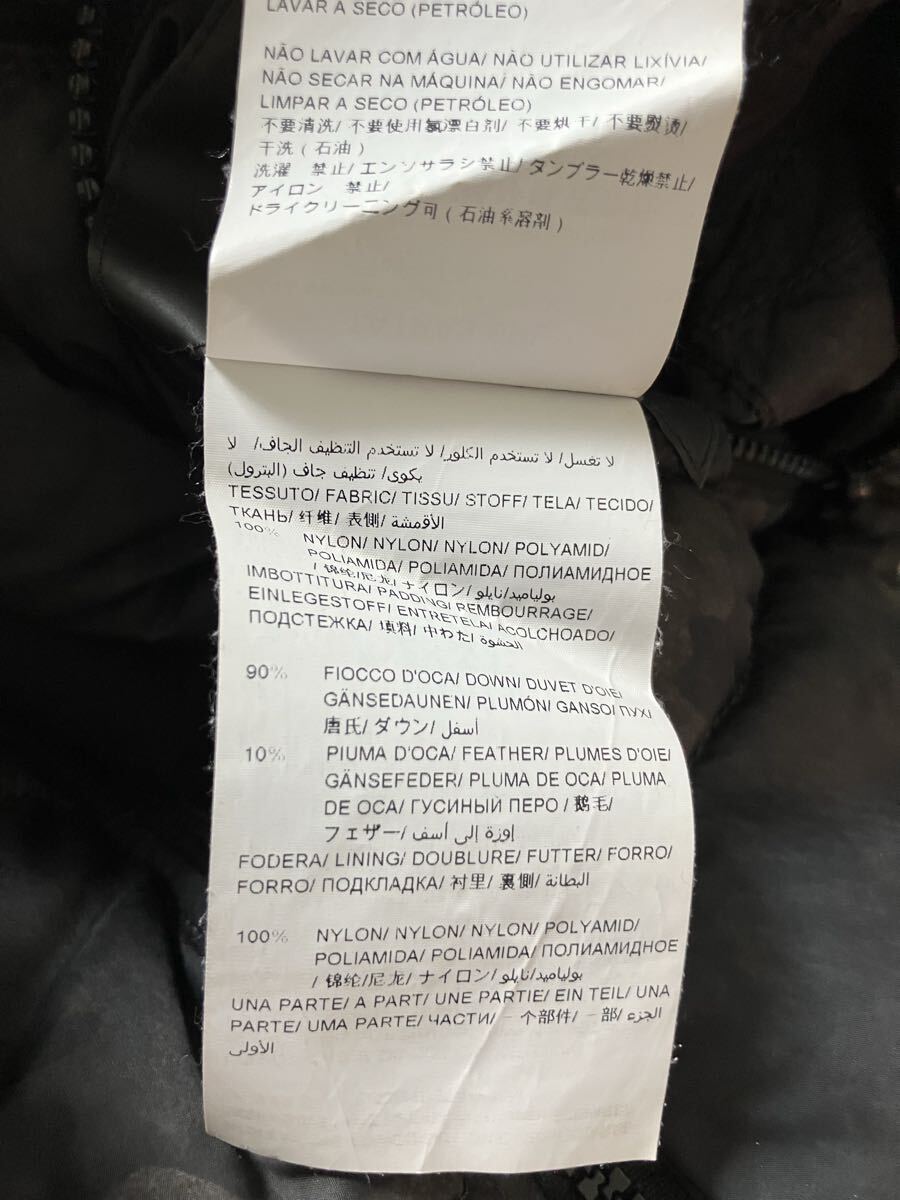 LAVAR A SECO (PETRÓLEO)
NÃO LAVAR COM ÁGUA/ NÃO UTILIZAR LIXÍVIA/
NÃO SECAR NA MÁQUINA/ NÃO ENGOMAR/
LIMPAR A SECO (PETRÓLEO)
不要清洗/ 不要使用氯漂白剂/ 不要烘干/ 不要熨烫/
干洗 ( 石油 )
洗濯　禁止/ エンソサラシ禁止/ タンブラー乾燥禁止/
アイロン　禁止/
ドライクリーニング可 ( 石油系溶剤 )
لا تغسل/ لا تستخدم الكلور/ لا تستخدم التنظيف الجاف/ لا
يكوى/ تنظيف جاف (البترول)
TESSUTO/ FABRIC/ TISSU/ STOFF/ TELA/ TECIDO/
ТКАНЬ/ 纤维/ 表側/ الأقمشة
100% NYLON/ NYLON/ NYLON/ POLYAMID/
POLIAMIDA/ POLIAMIDA/ ПОЛИАМИДНОЕ
/ 锦纶/尼龙/ ナイロン/ بولياميد/نايلو
IMBOTTITURA/ PADDING/ REMBOURRAGE/
EINLEGESTOFF/ ENTRETELA/ ACOLCHOADO/
ПОДСТЕЖКА/ 填料/ 中わた/ الحشوة
90% FIOCCO D'OCA/ DOWN/ DUVET D'OIE/
GÄNSEDAUNEN/ PLUMÓN/ GANSO/ ПУХ/
唐氏/ ダウン/ أسفل
10% PIUMA D'OCA/ FEATHER/ PLUMES D'OIE/
GÄNSEFEDER/ PLUMA DE OCA/ PLUMA
DE OCA/ ГУСИНЫЙ ПЕРО / 鹅毛/
フェザー/ إوزة إلى أسف
FODERA/ LINING/ DOUBLURE/ FUTTER/ FORRO/
FORRO/ ПОДКЛАДКА/ 衬里/ 裏側/ البطانة
100% NYLON/ NYLON/ NYLON/ POLYAMID/
POLIAMIDA/ POLIAMIDA/ ПОЛИАМИДНОЕ
/ 锦纶/尼龙/ ナイロン/ بولياميد/نايلو
UNA PARTE/ A PART/ UNE PARTIE/ EIN TEIL/ UNA
PARTE/ UMA PARTE/ ЧАСТИ/ 一个部件/ 一部/ الجزء
الأولى